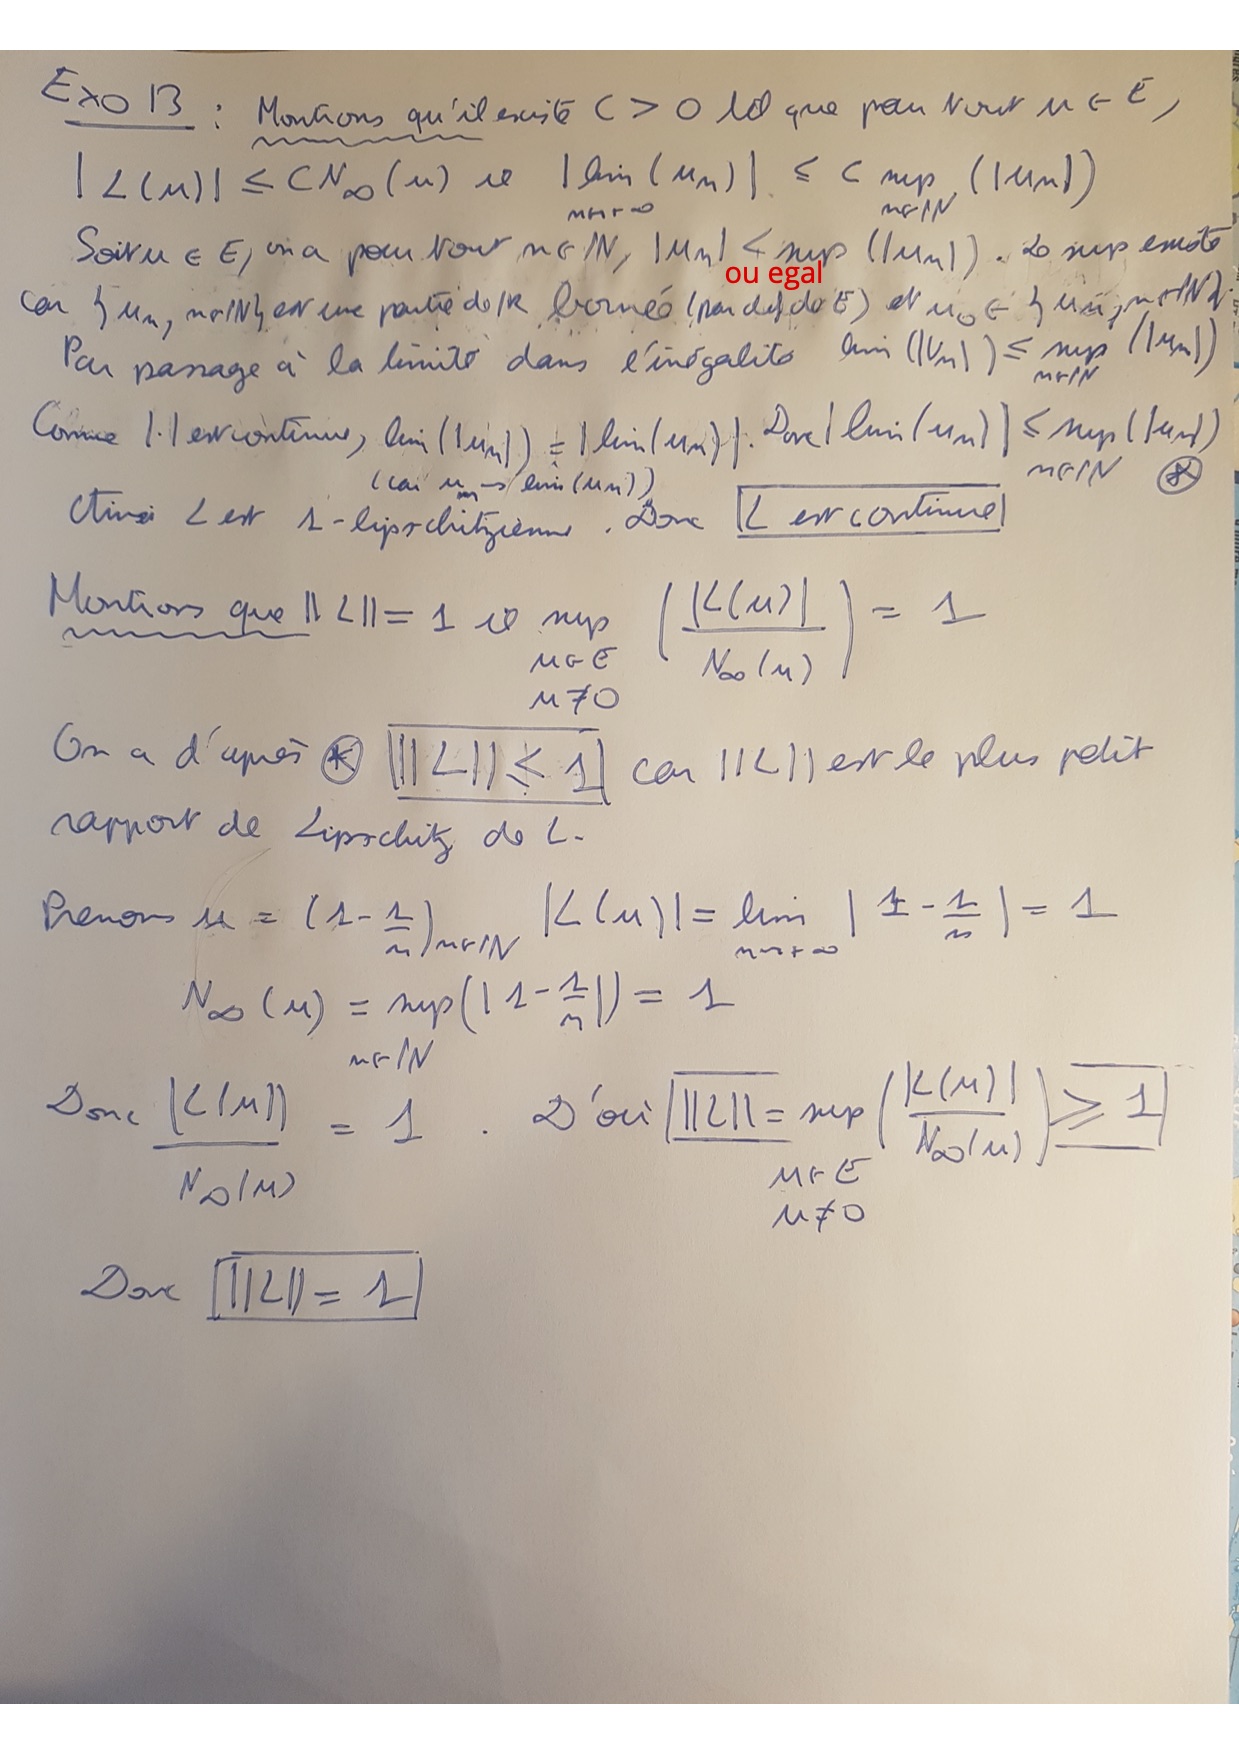 Exo 13 : Montrons qu'il existe C > 0 tel que pour tout u ∈ E,
|L(u)| ≤ C N∞(u) ie |lim n→+∞ (un)| ≤ C sup n∈IN (|un|)
Soit u ∈ E, on a pour tout n ∈ IN, |un| < sup (|un|). Le sup existe
ou egal
car {un, n∈IN} est une partie de IR bornée (par def de E) et u0 ∈ {un, n∈IN}.
Par passage à la limite dans l'inégalité lim (|Un|) ≤ sup n∈IN (|un|)
Comme |.| est continue, lim (|un|) = |lim(un)|. Donc |lim(un)| ≤ sup n∈IN (|un|) ⊛
(car un → lim(un))
Ainsi L est 1-lipschitzienne. Donc L est continue
Montrons que ||L|| = 1 ie sup u∈E u≠0 (|L(u)| / N∞(u)) = 1
On a d'après ⊛ |||L|| ≤ 1 car ||L|| est le plus petit
rapport de Lipschitz de L.
Prenons u = (1 - 1/n) n∈IN |L(u)| = lim n→+∞ |1 - 1/n| = 1
N∞(u) = sup n∈IN (|1 - 1/n|) = 1
Donc |L(u)| / N∞(u) = 1 . D'où ||L|| = sup u∈E u≠0 (|L(u)| / N∞(u)) ≥ 1
Donc ||L|| = 1